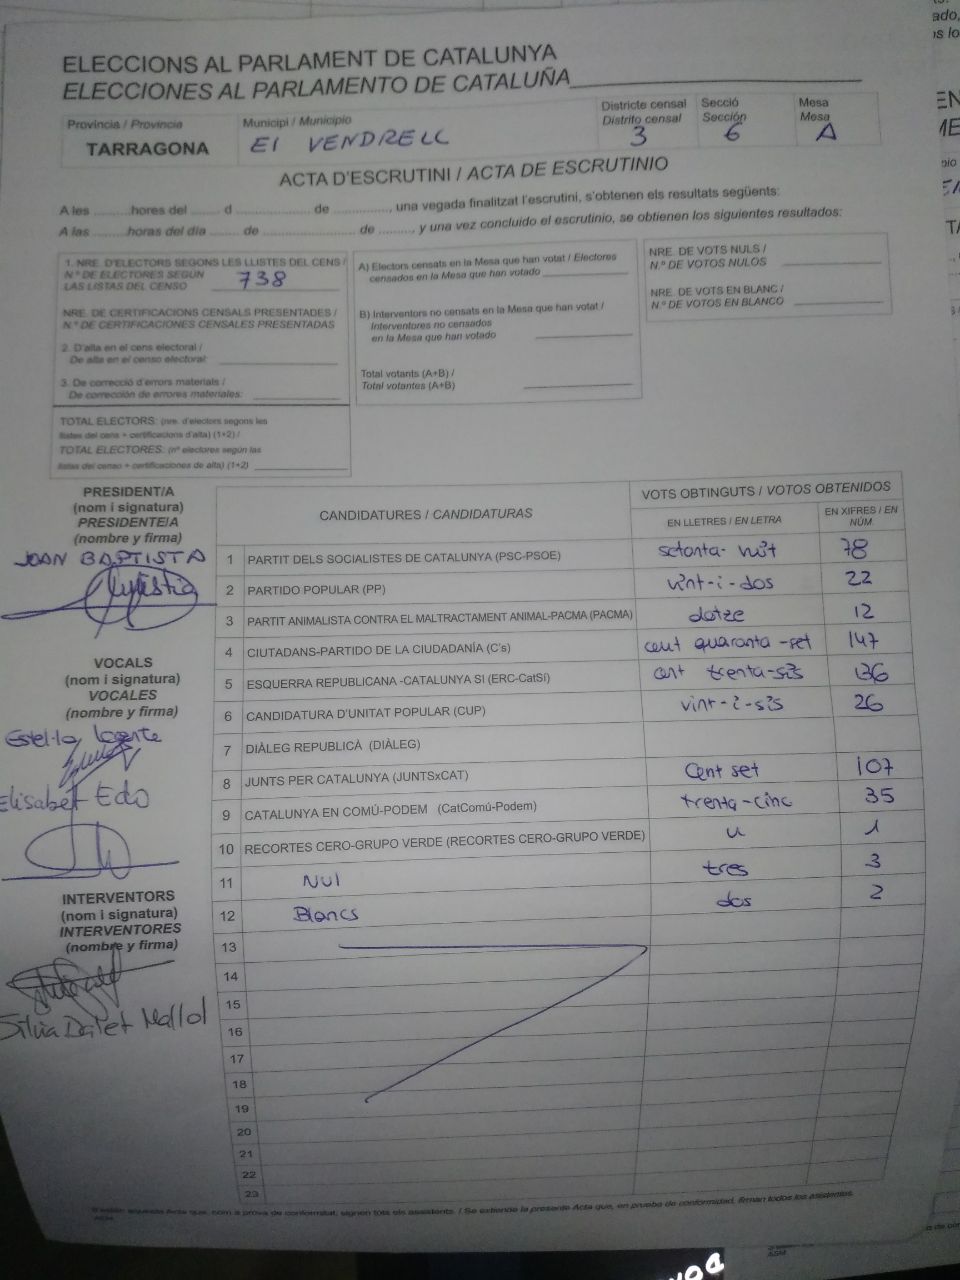 ELECCIONS AL PARLAMENT DE CATALUNYA
ELECCIONES AL PARLAMENTO DE CATALUÑA
Provincia / Provincia
TARRAGONA
Municipi / Municipio
El VENDRELL
Districte censal
Distrito censal
3
Secció
Sección
6
Mesa
Mesa
A
ACTA D'ESCRUTINI / ACTA DE ESCRUTINIO
A les .........hores del ....... d .................. de .............., una vegada finalitzat l'escrutini, s'obtenen els resultats següents:
A las .........horas del día ....... de ....................... de ........, y una vez concluido el escrutinio, se obtienen los siguientes resultados:
1. NRE. D'ELECTORS SEGONS LES LLISTES DEL CENS /
N.º DE ELECTORES SEGÚN
LAS LISTAS DEL CENSO 738
NRE. DE CERTIFICACIONS CENSALS PRESENTADES /
N.º DE CERTIFICACIONES CENSALES PRESENTADAS
2. D'alta en el cens electoral /
De alta en el censo electoral:
3. De correcció d'errors materials /
De corrección de errores materiales:
TOTAL ELECTORS: (nre. d'electors segons les
llistes del cens + certificacions d'alta) (1+2) /
TOTAL ELECTORES: (nº electores según las
listas del censo + certificaciones de alta) (1+2)
A) Electors censats en la Mesa que han votat / Electores
censados en la Mesa que han votado
B) Interventors no censats en la Mesa que han votat /
Interventores no censados
en la Mesa que han votado
Total votants (A+B) /
Total votantes (A+B)
NRE. DE VOTS NULS /
N.º DE VOTOS NULOS
NRE. DE VOTS EN BLANC /
N.º DE VOTOS EN BLANCO
PRESIDENT/A
(nom i signatura)
PRESIDENTE/A
(nombre y firma)
JOAN BAPTISTA
VOCALS
(nom i signatura)
VOCALES
(nombre y firma)
Elisabet Edo
INTERVENTORS
(nom i signatura)
INTERVENTORES
(nombre y firma)
CANDIDATURES / CANDIDATURAS
VOTS OBTINGUTS / VOTOS OBTENIDOS
EN LLETRES / EN LETRA
EN XIFRES / EN NÚM.
1 PARTIT DELS SOCIALISTES DE CATALUNYA (PSC-PSOE) setanta-vuit 78
2 PARTIDO POPULAR (PP) vint-i-dos 22
3 PARTIT ANIMALISTA CONTRA EL MALTRACTAMENT ANIMAL-PACMA (PACMA) dotze 12
4 CIUTADANS-PARTIDO DE LA CIUDADANÍA (C's) cent quaranta-set 147
5 ESQUERRA REPUBLICANA -CATALUNYA SI (ERC-CatSí) cent trenta-sis 136
6 CANDIDATURA D'UNITAT POPULAR (CUP) vint-i-sis 26
7 DIÀLEG REPUBLICÀ (DIÀLEG)
8 JUNTS PER CATALUNYA (JUNTSxCAT) Cent set 107
9 CATALUNYA EN COMÚ-PODEM (CatComú-Podem) trenta-cinc 35
10 RECORTES CERO-GRUPO VERDE (RECORTES CERO-GRUPO VERDE) u 1
11 Nul tres 3
12 Blancs dos 2
13
14
15
16
17
18
19
20
21
22
23
S'estén aquesta Acta que, com a prova de conformitat, signen tots els assistents. / Se extiende la presente Acta que, en prueba de conformidad, firman todos los asistentes.
ASM